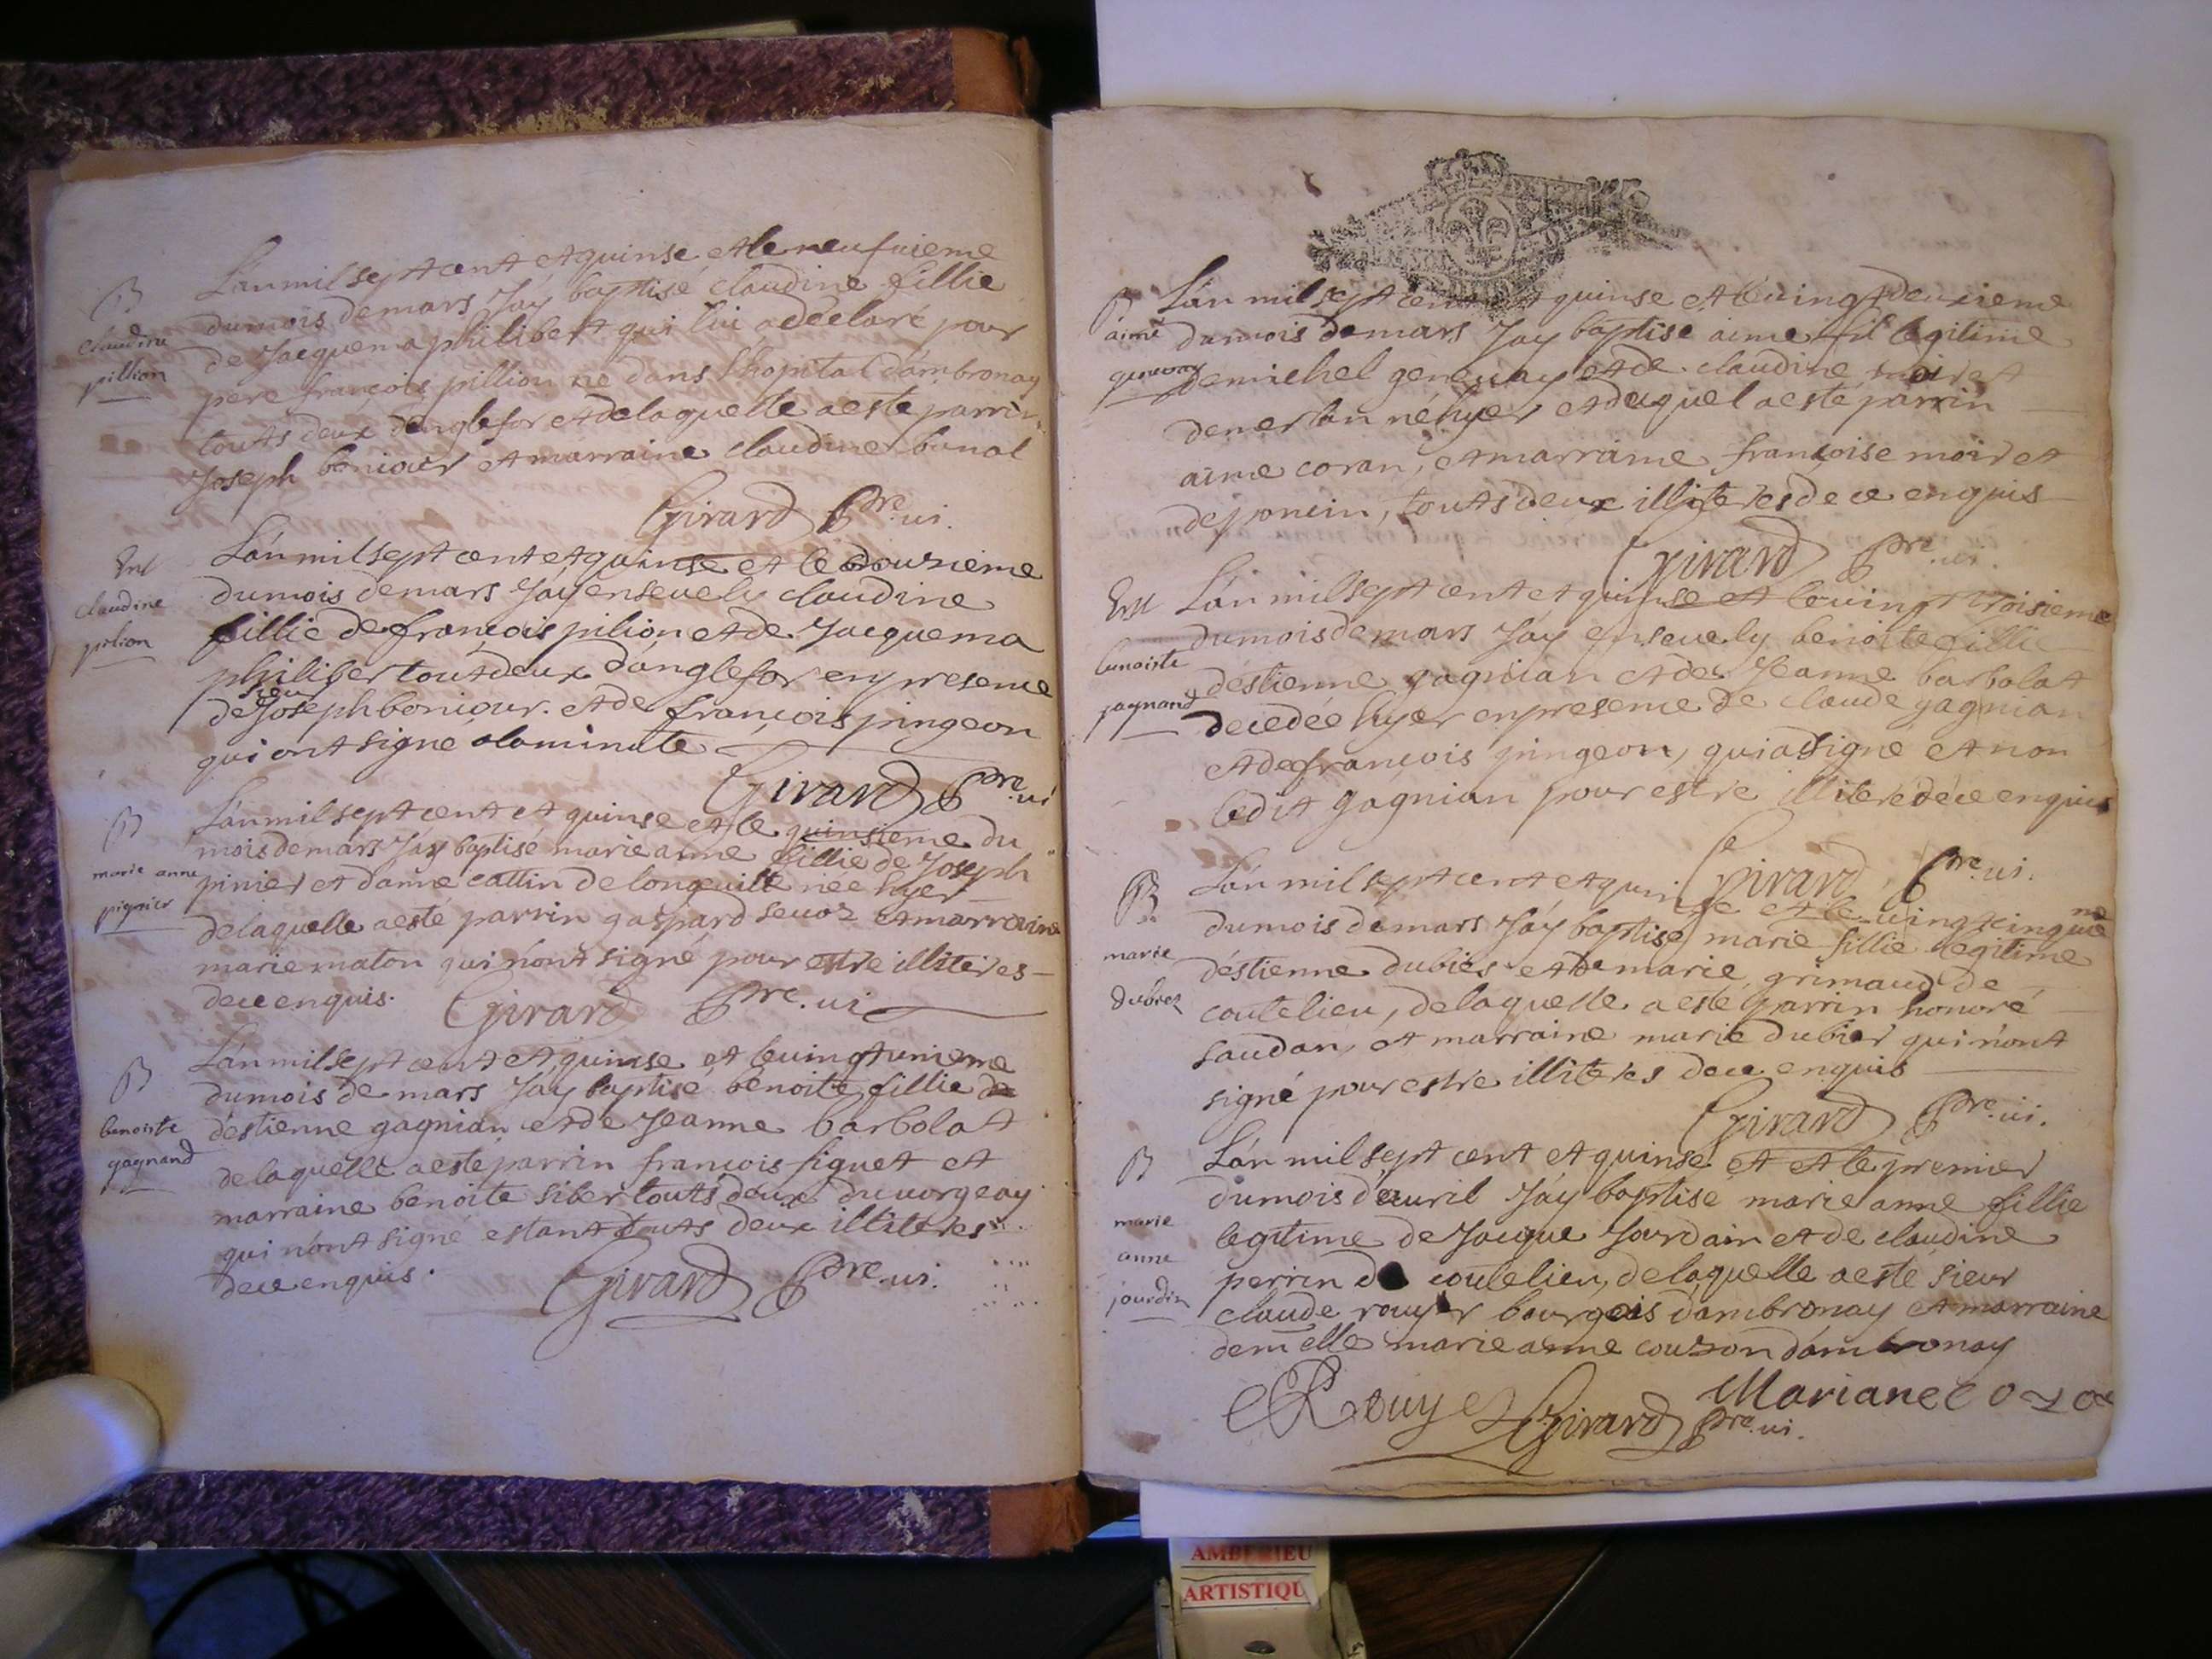 B
claudine
pillion
Lán mil sept cent et quinse et le neufuieme
du mois de mars Jáy baptisé claudine fillie
de Jacquema philibert qui lui a déclaré pour
pere françois pillion ne dans l'hopital d'ambronay
touts deux danglefor et de laquelle a esté parrin
Joseph boniour et marraine claudine bunol
Girard pre. ui.
Ent
claudine
pilion
Lán mil sept cent et quinse et le dousieme
du mois de mars Jáy enseuely claudine
fillie de françois pilion et de Jacquema
philiber tout deux dánglefor en presence
de sieur Joseph boniour. et de françois pingeon
qui ont signé a la minute
Girard pre. ui
B
marie anne
pignier
Lán mil sept cent et quinse et le quinsieme du
mois de mars Jáy baptisé marie anne fillie de Joseph
pinier et danne cattin de longeuille née hyer
de laquelle a esté parrin gaspard seuoz et marraine
marie maton qui nónt signé pour estre illiteres
de ce enquis. Girard pre. ui
B
benoiste
gagnand
Lán mil sept cent et quinse et le uingt unieme
du mois de mars Jáy baptisé benoite fillie de
déstienne gagnian et de Jeanne barbolat
de laquelle a esté parrin françois figuet et
marraine benoite siber touts deux du uorgeay
qui nónt signé estant touts deux illiteres
de ce enquis.
Girard pre. ui.
B
aimé
geneuay
Lán mil sept cent et quinse et le uingt deuxieme
du mois de mars Jáy baptisé aime fil legitime
de michel geneuay et de claudine moiret
de merlan né hyer et duquel a esté parrin
aime coran, et marraine françoise moiret
de poncin, touts deux illiteres de ce enquis
Girard pre. ui.
Ent
benoiste
gagnand
Lán mil sept cent et quinse et le uingt troisieme
du mois de mars Jáy enseuely benoite fillie
déstienne gagnian et de Jeanne barbolat
decedée hyer en presence de claude gagnian
et de françois pingeon, qui a signé et non
ledit gagnian pour estre illiteré de ce enquis
Girard pre. ui.
B
marie
dubiez
Lán mil sept cent et quinse et le uingt cinquie me
du mois de mars Jáy baptisé marie fillie legitime
déstienne dubier et de marie grimaud de
coutelieu, de laquelle a esté parrin honoré
saudan, et marraine marie dubier qui nónt
signé pour estre illiteres de ce enquis
Girard pre. ui.
B
marie
anne
jourdin
Lán mil sept cent et quinse et et le premier
du mois dáuril Jáy baptisé marie anne fillie
legitime de Jacque Jourdain et de claudine
perrin de coutelieu, de laquelle a esté sieur
claude rouyer bourgois dambronay et marraine
demelle marie anne couson dámbronay
Rouyer Mariane
Girard pre. ui.
AMBERIEU
ARTISTIQU